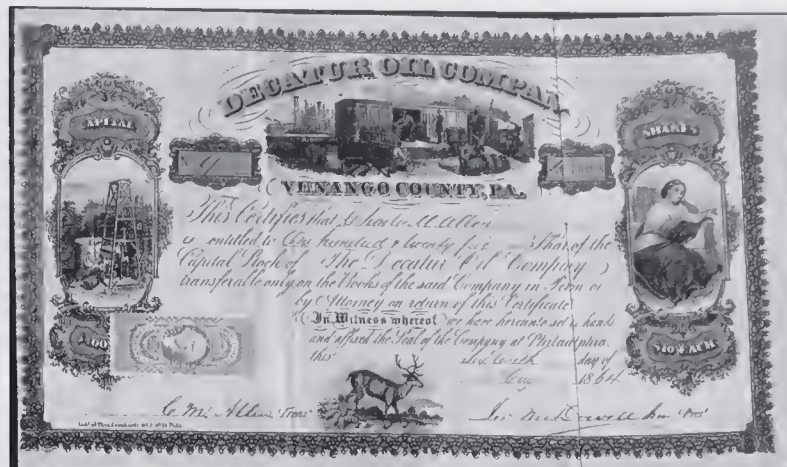 DECATUR OIL COMPAN
VENANGO COUNTY, PA.
CAPITAL
SHARES
This Certifies that Charles M. Allen
is entitled to One hundred & twenty five Shares of the
Capital Stock of The Decatur Oil Company
transferable only on the Books of the said Company in Person or
by Attorney on return of this Certificate
In Witness whereof we have hereunto set hands
and affixed the Seal of the Company at Philadelphia
this day of
Aug 1864
$10 EACH
C. M. Allen Treas
Jno McDowell Jun Pres